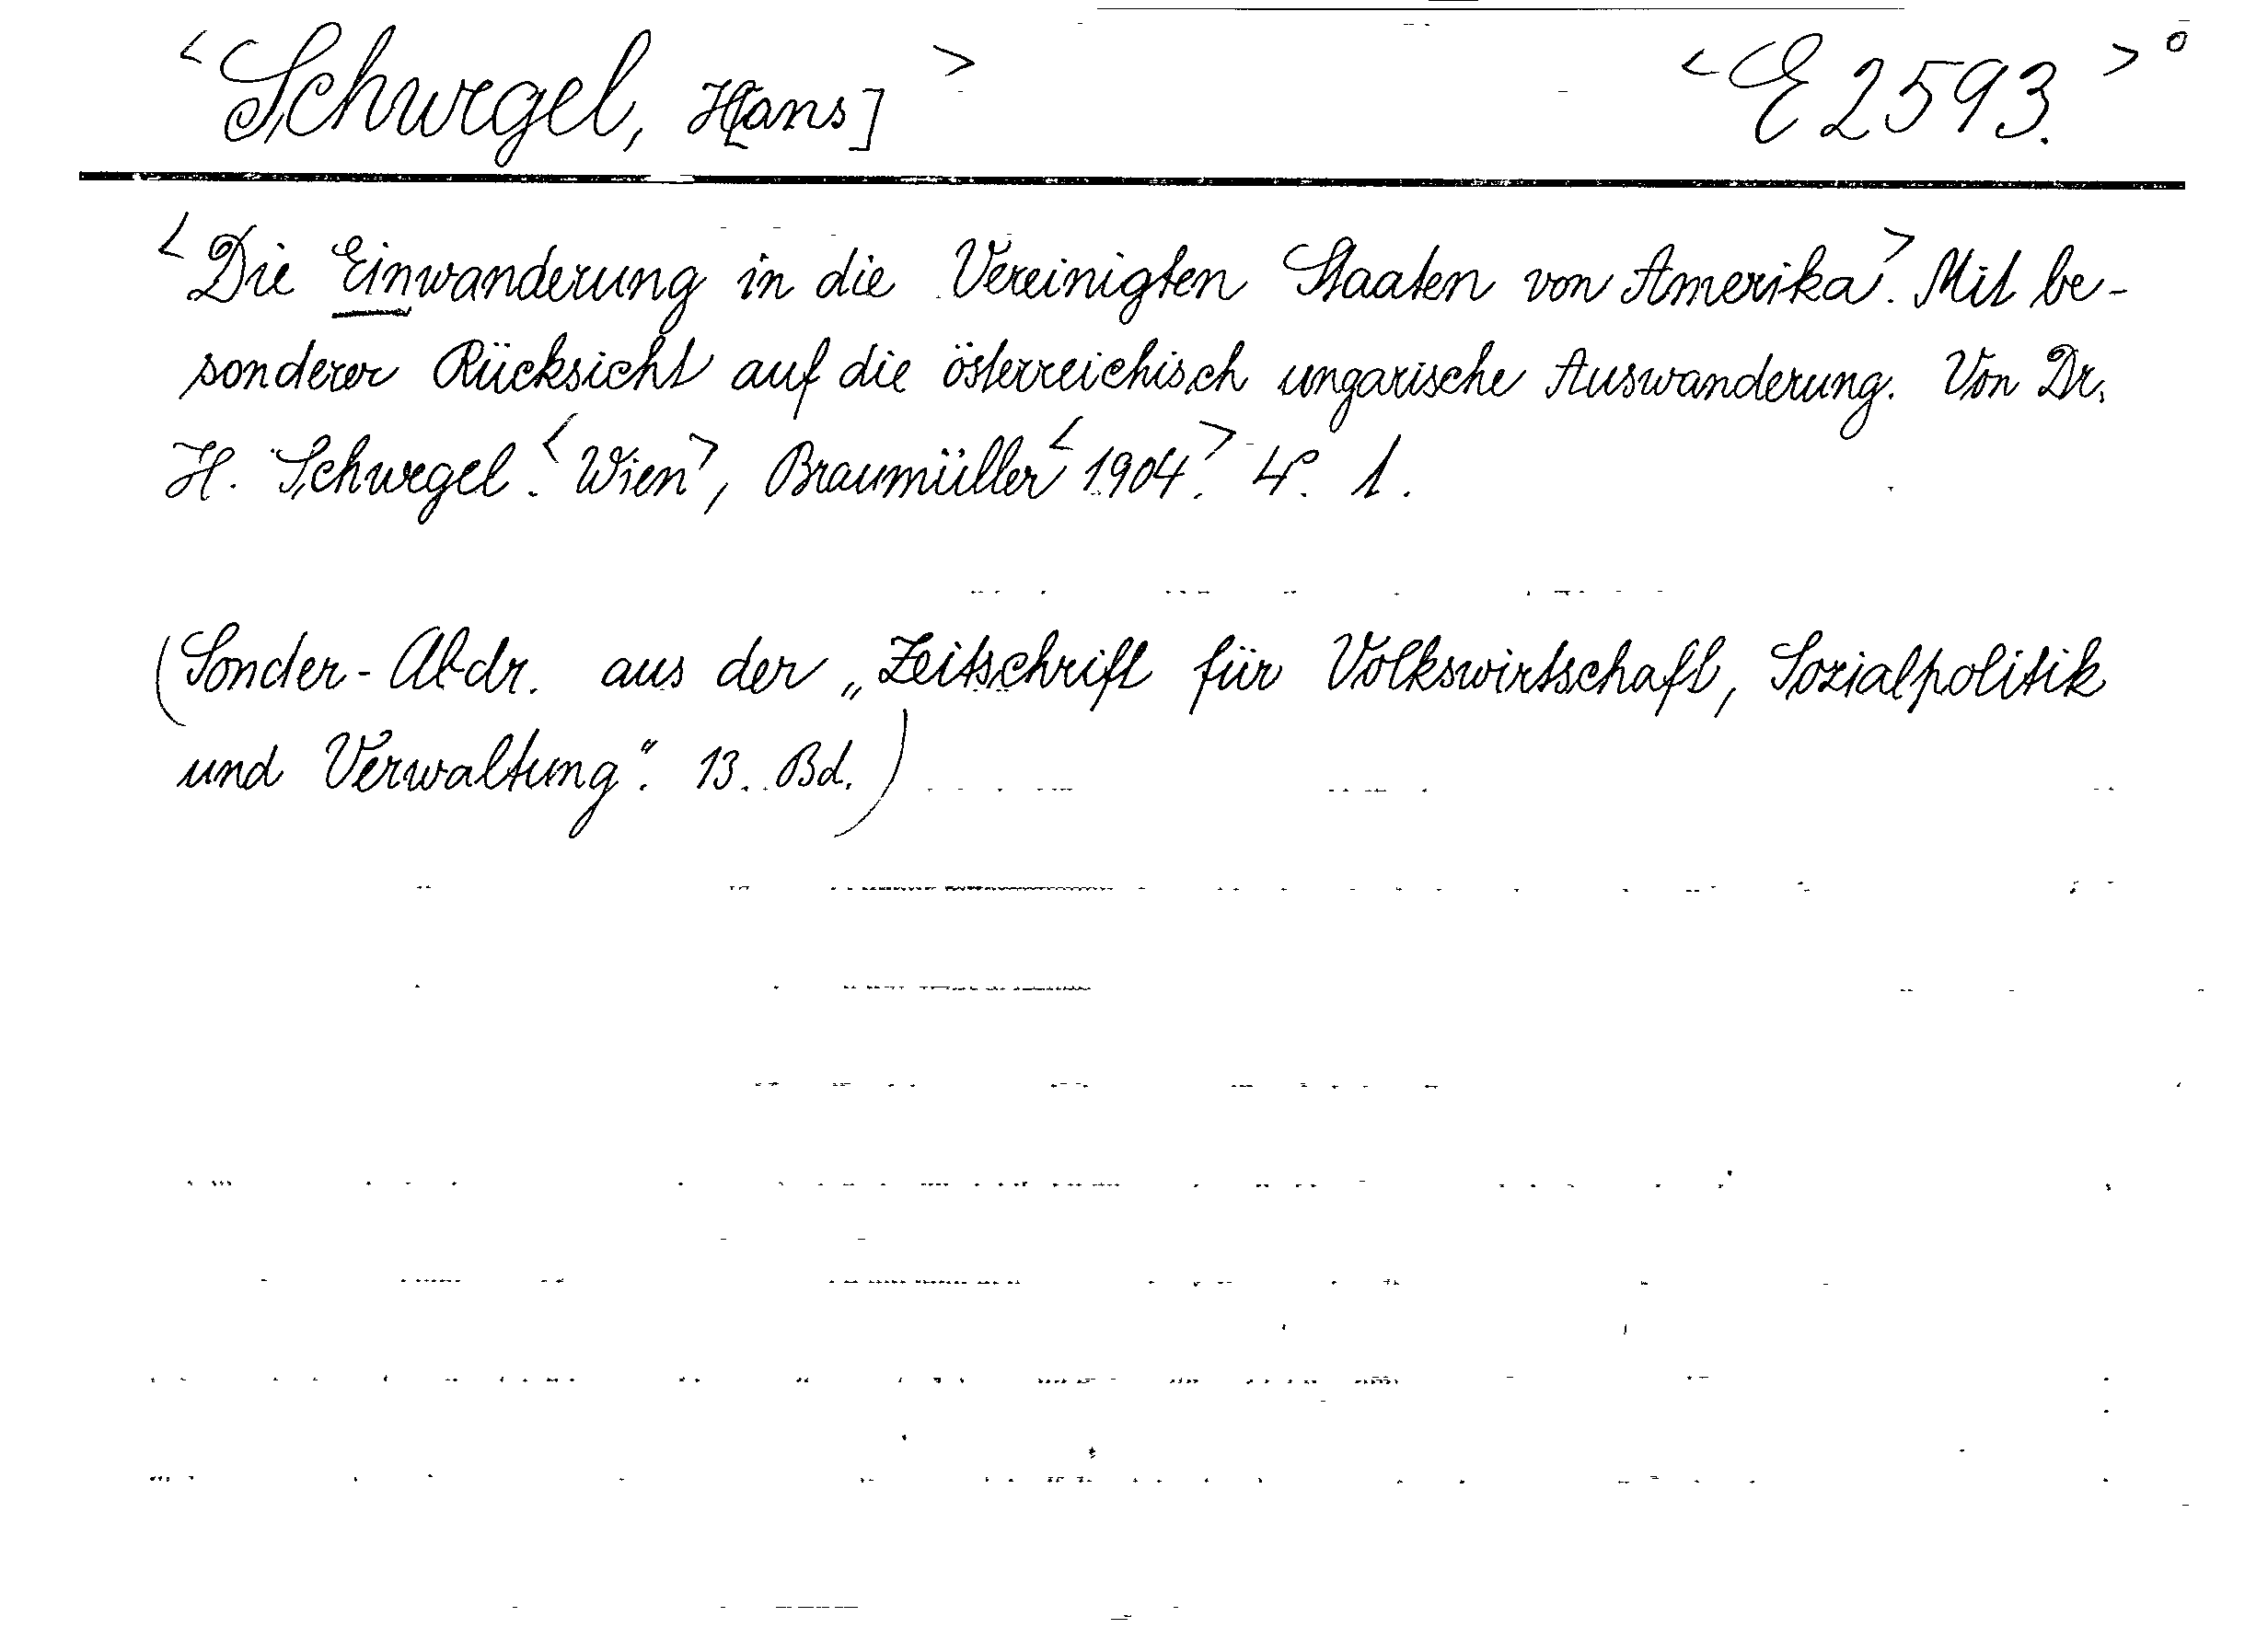 <Schwegel, H[ans]> <E 2593.>°
<Die Einwanderung in die Vereinigten Staaten von Amerika>. Mit be-
sonderer Rücksicht auf die österreichisch ungarische Auswanderung. Von Dr.
H. Schwegel. <Wien>, Braumüller <1904>. 4°. 1.
(Sonder-Abdr. aus der „Zeitschrift für Volkswirtschaft, Sozialpolitik
und Verwaltung“. 13. Bd.)